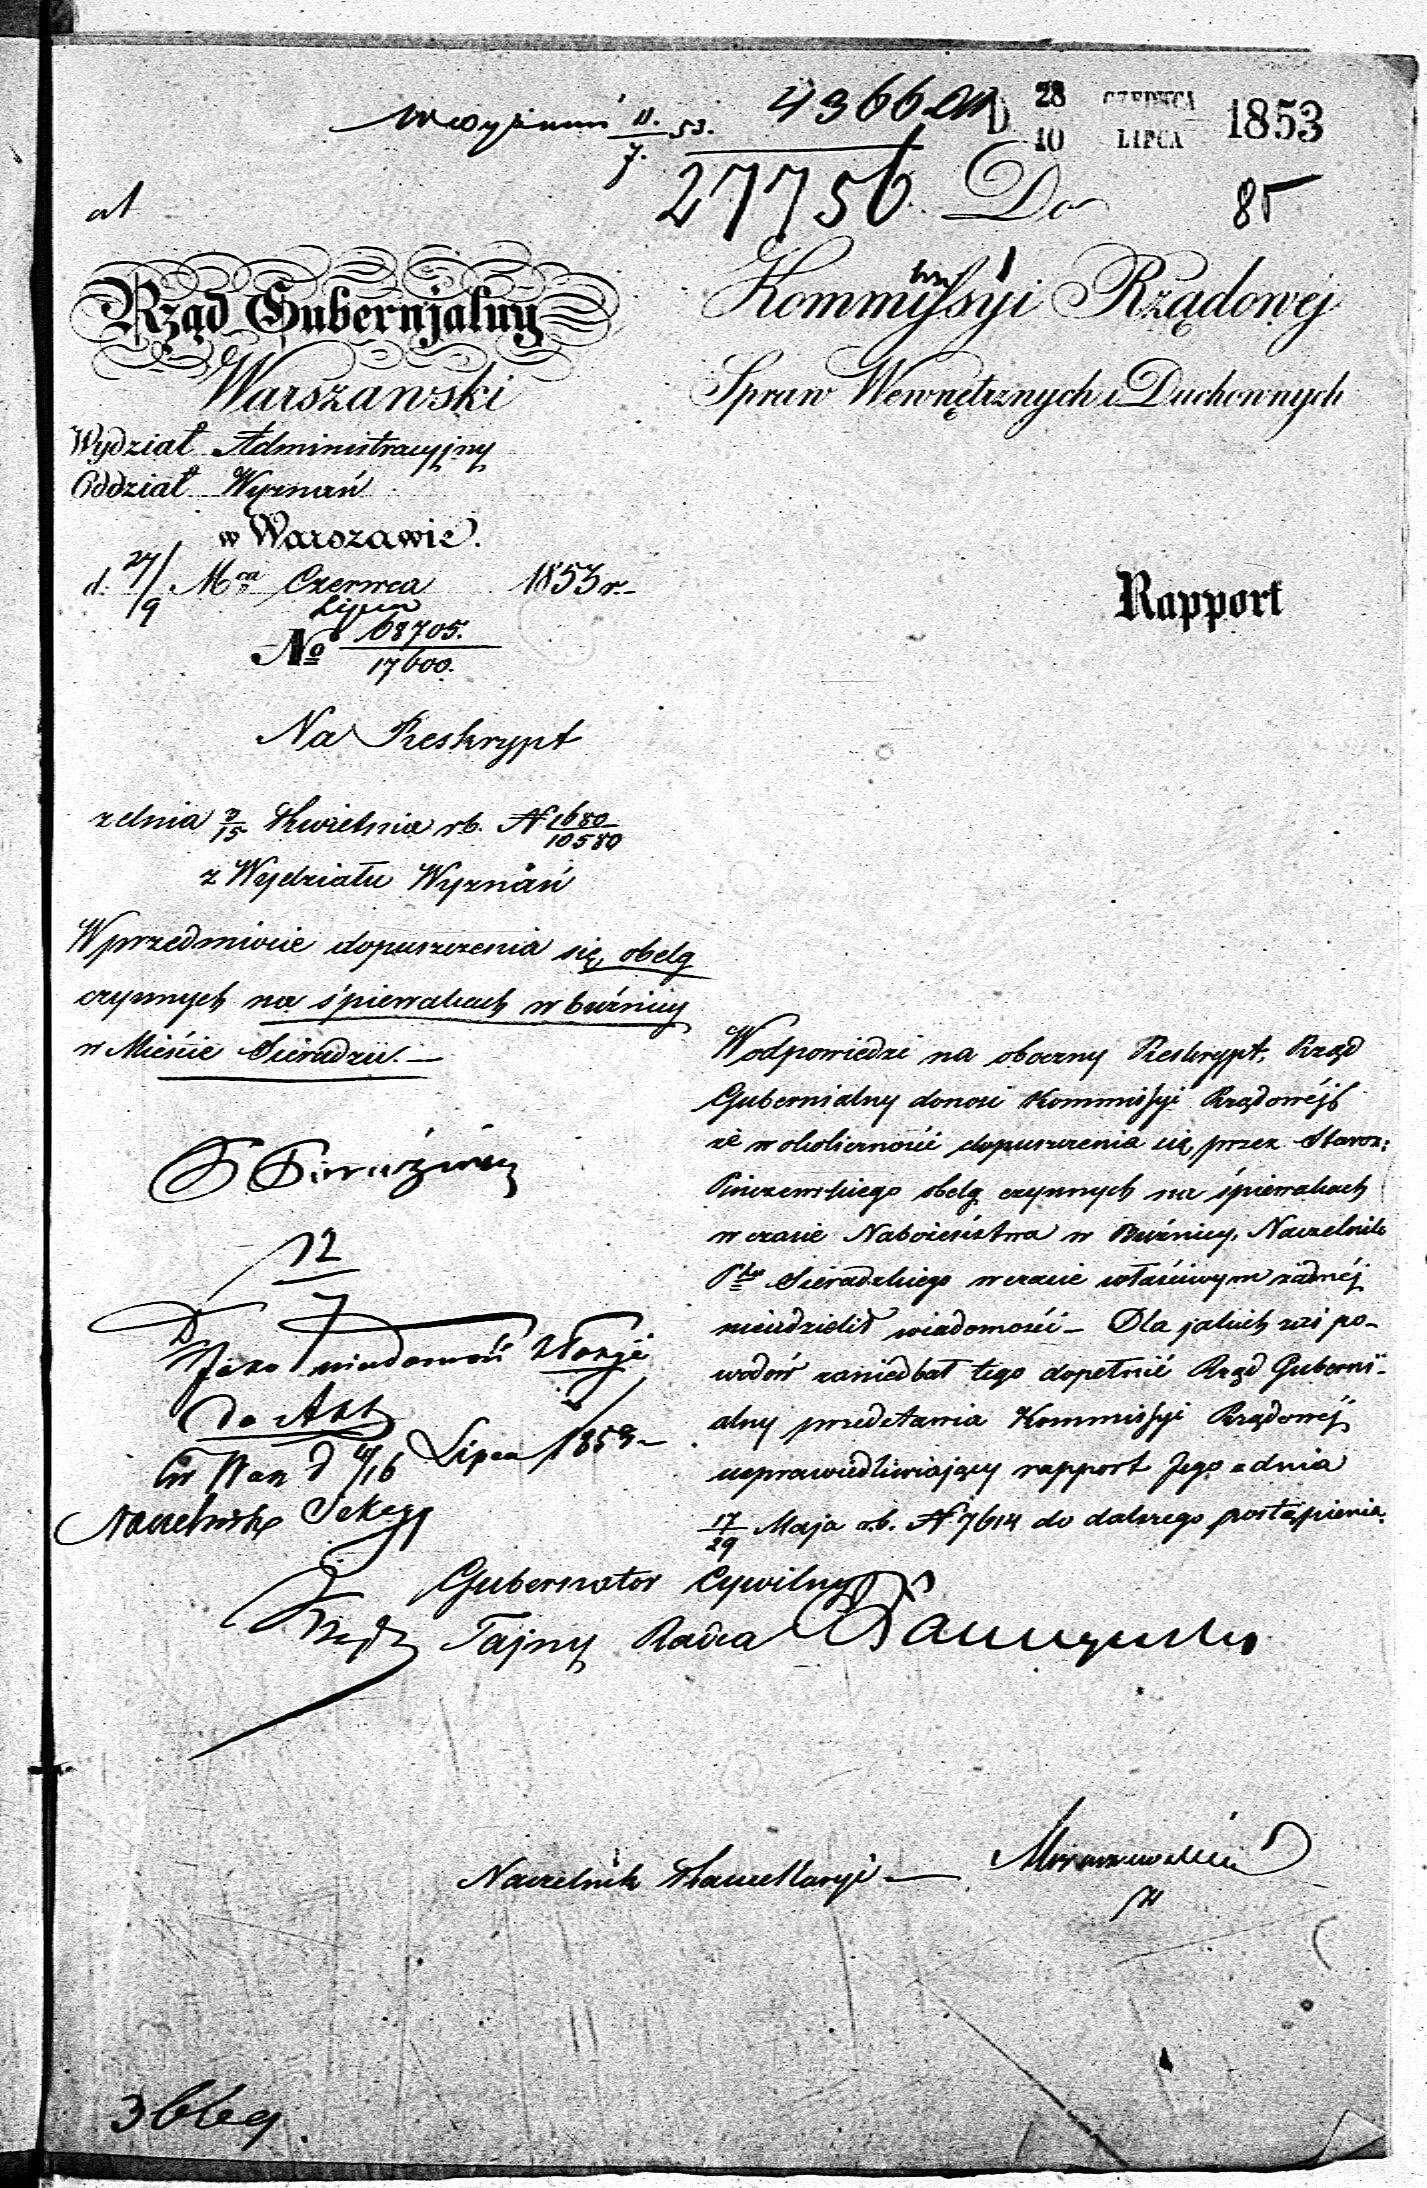 W Wyznań 11./7. 53. 4366
27756.
D 28 CZERWCA
10 LIPCA 1853
85
Rząd Gubernjalny
Warszawski
Wydział Administracyjny
Oddział Wyznań
w Warszawie.
d. 27/9 Mca Czerwca Lipca 1853 r.
No 68705./17600.
Na Reskrypt
z dnia 3/15 Kwietnia rb. N 1680/10580
z Wydziału Wyznań
W przedmiocie dopuszczenia się obelg
czynnych na śpiewakach w bużnicy
w Mieście Sieradzu. —
12/7
Jako wiadomość złożyć
do Akt
w War d 4/16 Lipca 1853 —
Naczelnik Sekcyi
Do
Kommissyi Rządowej
Spraw Wewnętrznych i Duchownych
Rapport
W odpowiedzi na oboczny Reskrypt, Rząd
Gubernialny donosi Kommissyi Rządowéj
że w okoliczności dopuszczenia się przez Staroz:
Pinczewskiego obelg czynnych na śpiewakach
w czasie Nabożeństwa w Bużnicy, Naczelnik
Ptu Sieradzkiego w czasie właściwym żadnéj
nieudzielił wiadomości — Dla jakich zaś po-
wodów zaniedbał tego dopełnić Rząd Guberni-
alny przedstawia Kommissyi Rządowéj
usprawiedliwiający rapport Jego z dnia
17/29 Maja r.b. N 7614 do dalszego postąpienia.
Gubernator Cywilny
Tajny Radca
Naczelnik Kancellaryi —
3669.